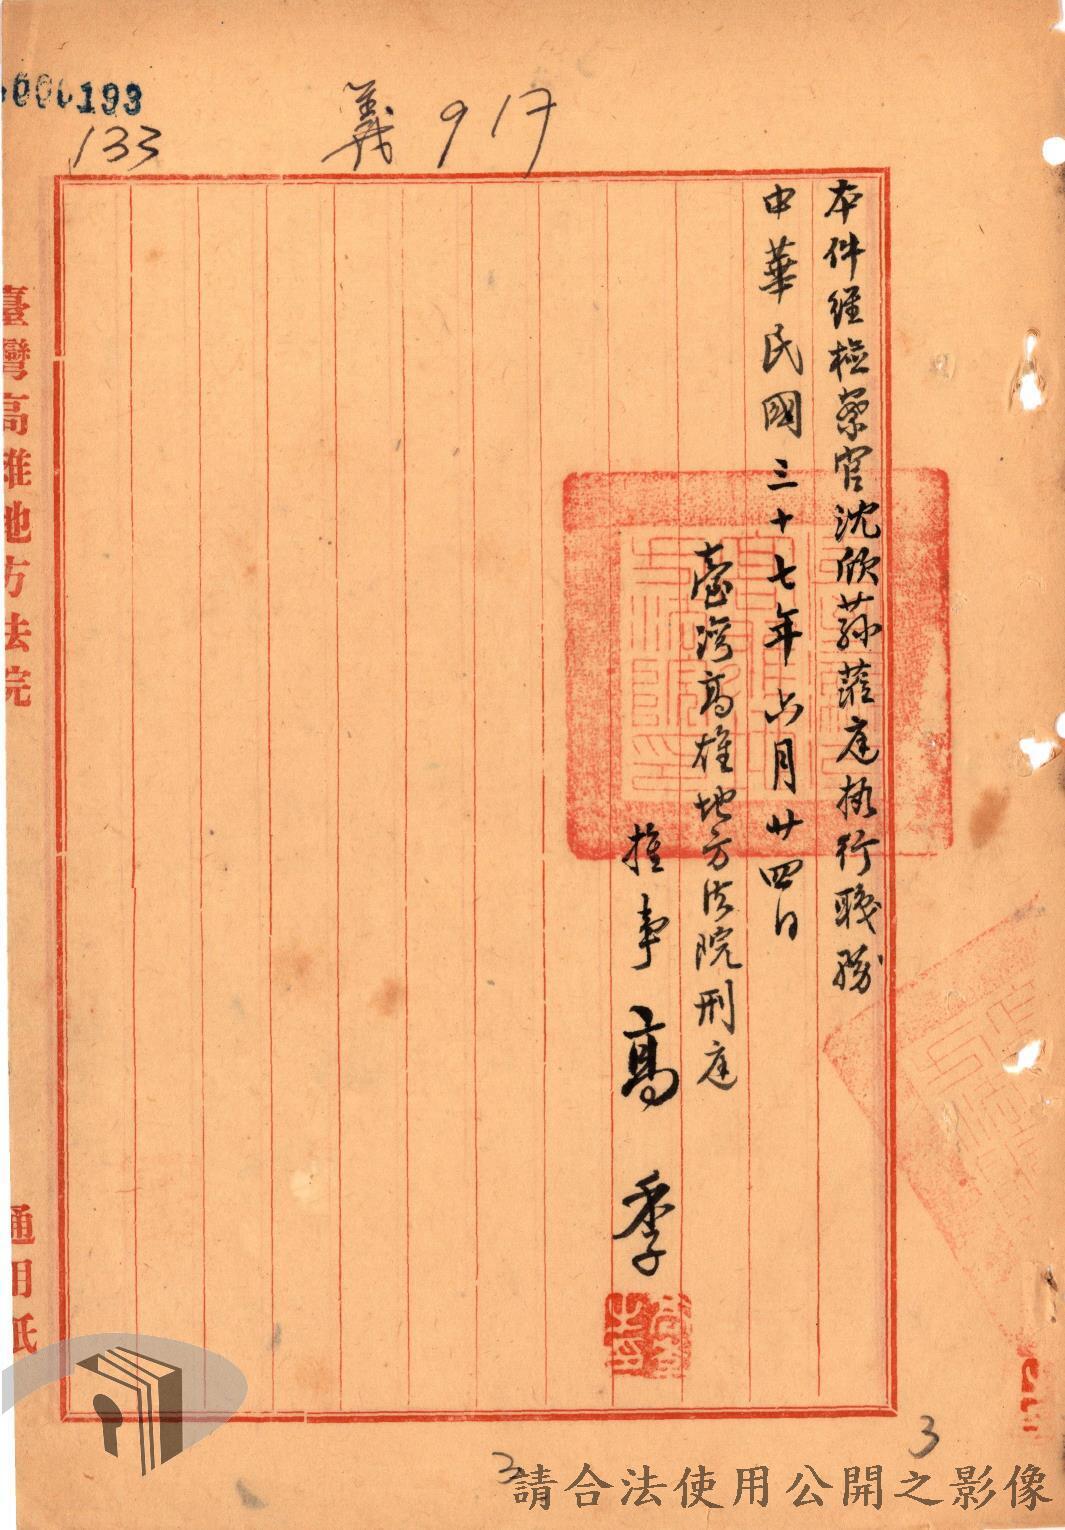 193
133
義 917
本件經檢察官沈欣蓀蒞庭執行職務
中華民國三十七年六月廿四日
臺灣高雄地方法院刑庭
推事 高季
臺灣高雄地方法院
通用紙
3
3
請合法使用公開之影像